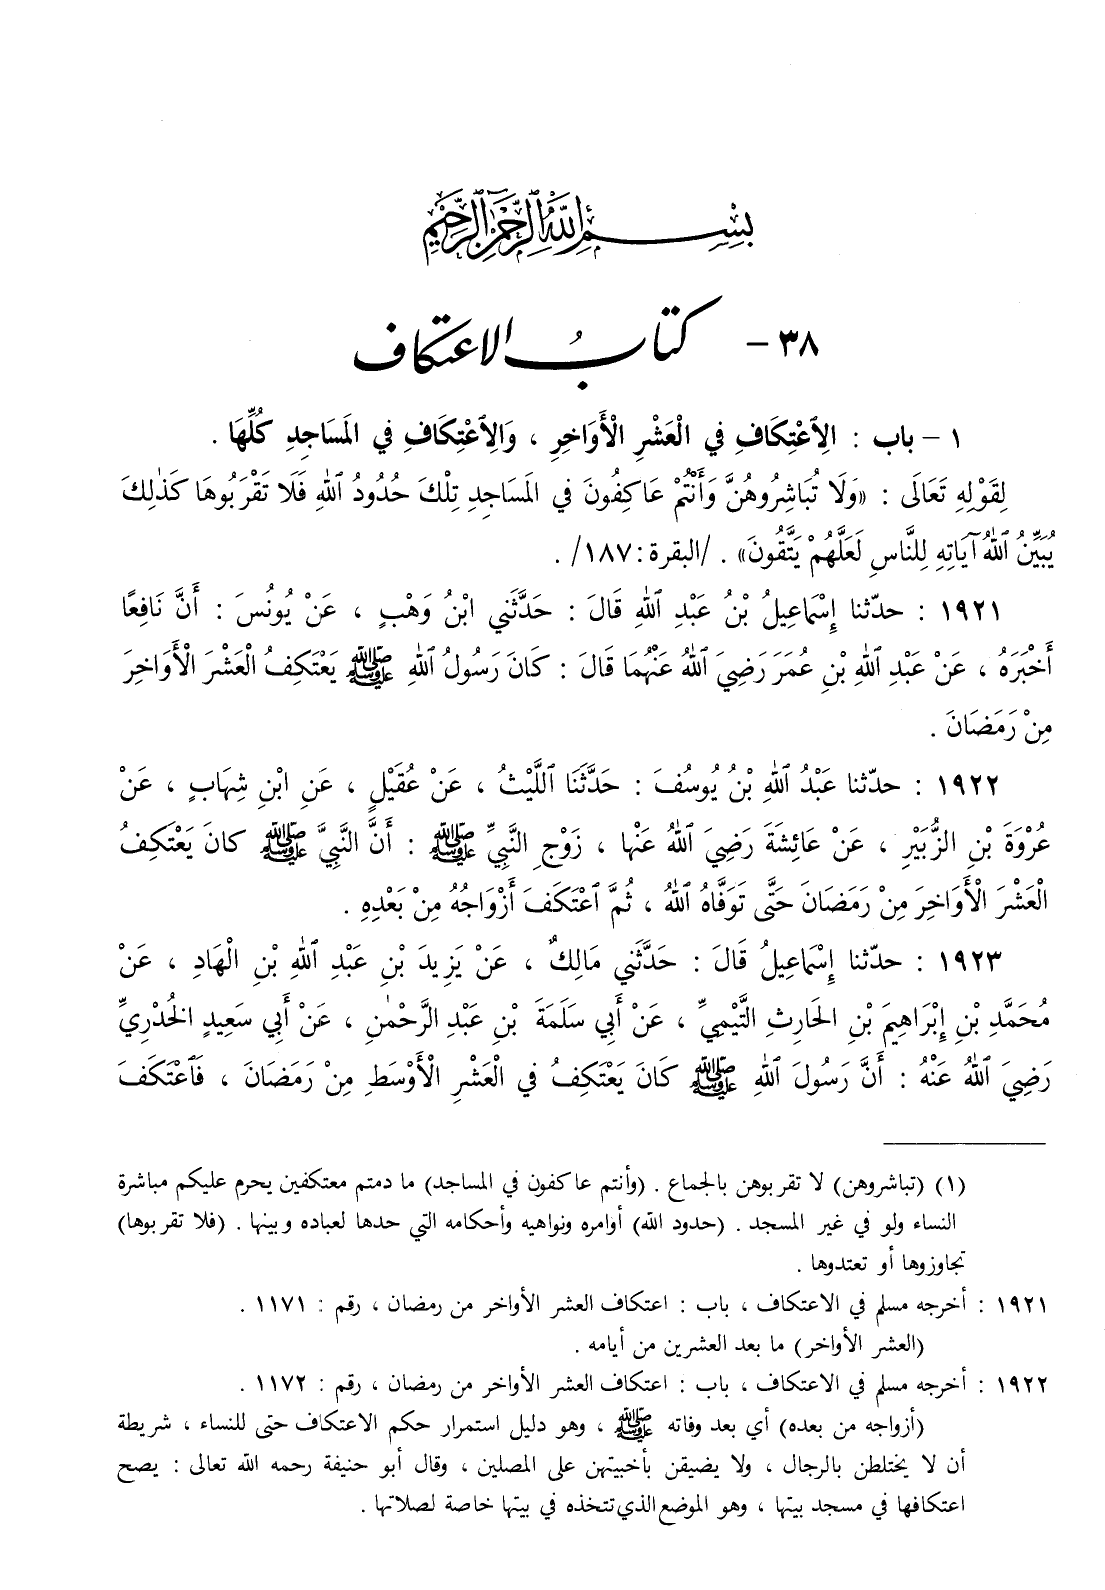 بِسْمِ اللّٰهِ الرَّحْمٰنِ الرَّحِيْمِ
٣٨ - كتابُ الاعتكاف
١ - باب : الِاعْتِكَافِ فِي الْعَشْرِ الْأَوَاخِرِ ، وَالِاعْتِكَافِ فِي المَسَاجِدِ كُلِّهَا .
لِقَوْلِهِ تَعَالَى : «وَلَا تُبَاشِرُوهُنَّ وَأَنْتُمْ عَاكِفُونَ فِي المَسَاجِدِ تِلْكَ حُدُودُ ٱللهِ فَلَا تَقْرَبُوهَا كَذٰلِكَ
يُبَيِّنُ ٱللهُ آيَاتِهِ لِلنَّاسِ لَعَلَّهُمْ يَتَّقُونَ» . /البقرة : ١٨٧/ .
١٩٢١ : حدّثنا إِسْمَاعِيلُ بْنُ عَبْدِ ٱللهِ قَالَ : حَدَّثَنِي ابْنُ وَهْبٍ ، عَنْ يُونُسَ : أَنَّ نَافِعًا
أَخْبَرَهُ ، عَنْ عَبْدِ ٱللهِ بْنِ عُمَرَ رَضِيَ ٱللهُ عَنْهُمَا قَالَ : كَانَ رَسُولُ ٱللهِ ﷺ يَعْتَكِفُ الْعَشْرَ الْأَوَاخِرَ
مِنْ رَمَضَانَ .
١٩٢٢ : حدّثنا عَبْدُ ٱللهِ بْنُ يُوسُفَ : حَدَّثَنَا اللَّيْثُ ، عَنْ عُقَيْلٍ ، عَنِ ابْنِ شِهَابٍ ، عَنْ
عُرْوَةَ بْنِ الزُّبَيْرِ ، عَنْ عَائِشَةَ رَضِيَ ٱللهُ عَنْهَا ، زَوْجِ النَّبِيِّ ﷺ : أَنَّ النَّبِيَّ ﷺ كانَ يَعْتَكِفُ
الْعَشْرَ الْأَوَاخِرَ مِنْ رَمَضَانَ حَتَّى تَوَفَّاهُ ٱللهُ ، ثُمَّ ٱعْتَكَفَ أَزْوَاجُهُ مِنْ بَعْدِهِ .
١٩٢٣ : حدّثنا إِسْمَاعِيلُ قَالَ : حَدَّثَنِي مَالِكٌ ، عَنْ يَزِيدَ بْنِ عَبْدِ ٱللهِ بْنِ الْهَادِ ، عَنْ
مُحَمَّدِ بْنِ إِبْرَاهِيمَ بْنِ الحَارِثِ التَّيْمِيِّ ، عَنْ أَبِي سَلَمَةَ بْنِ عَبْدِ الرَّحْمٰنِ ، عَنْ أَبِي سَعِيدٍ الخُدْرِيِّ
رَضِيَ ٱللهُ عَنْهُ : أَنَّ رَسُولَ ٱللهِ ﷺ كَانَ يَعْتَكِفُ فِي الْعَشْرِ الْأَوْسَطِ مِنْ رَمَضَانَ ، فَٱعْتَكَفَ
(١) (تباشروهن) لا تقربوهن بالجماع . (وأنتم عاكفون في المساجد) ما دمتم معتكفين يحرم عليكم مباشرة
النساء ولو في غير المسجد . (حدود الله) أوامره ونواهيه وأحكامه التي حدها لعباده وبينها . (فلا تقربوها)
تجاوزوها أو تعتدوها .
١٩٢١ : أخرجه مسلم في الاعتكاف ، باب : اعتكاف العشر الأواخر من رمضان ، رقم : ١١٧١ .
(العشر الأواخر) ما بعد العشرين من أيامه .
١٩٢٢ : أخرجه مسلم في الاعتكاف ، باب : اعتكاف العشر الأواخر من رمضان ، رقم : ١١٧٢ .
(أزواجه من بعده) أي بعد وفاته ﷺ ، وهو دليل استمرار حكم الاعتكاف حتى للنساء ، شريطة
أن لا يختلطن بالرجال ، ولا يضيقن بأخبيتهن على المصلين ، وقال أبو حنيفة رحمه الله تعالى : يصح
اعتكافها في مسجد بيتها ، وهو الموضع الذي تتخذه في بيتها خاصة لصلاتها .